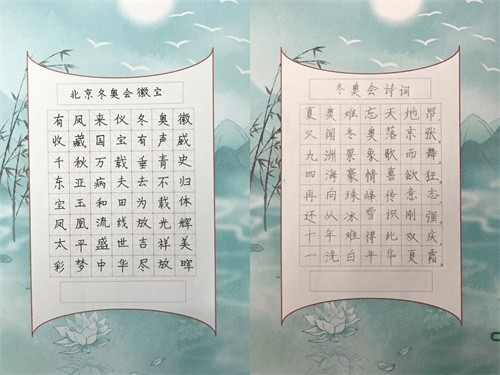 北京冬奥会徽宝
有凤来仪冬奥徽
收藏国宝有声威
千秋万载垂青史
东亚病夫去不归
宝玉和田为载体
凤凰流线放光辉
太平盛世吉祥美
彩梦中华尽放晖
冬奥会诗词
夏奥难忘天地昂
又闻冬奥落京张
九洲景象歌而舞
四海豪情喜欲狂
再向珠峰传意志
还从冰雪识刚强
十年难得此双庆
一洗百年华夏霜